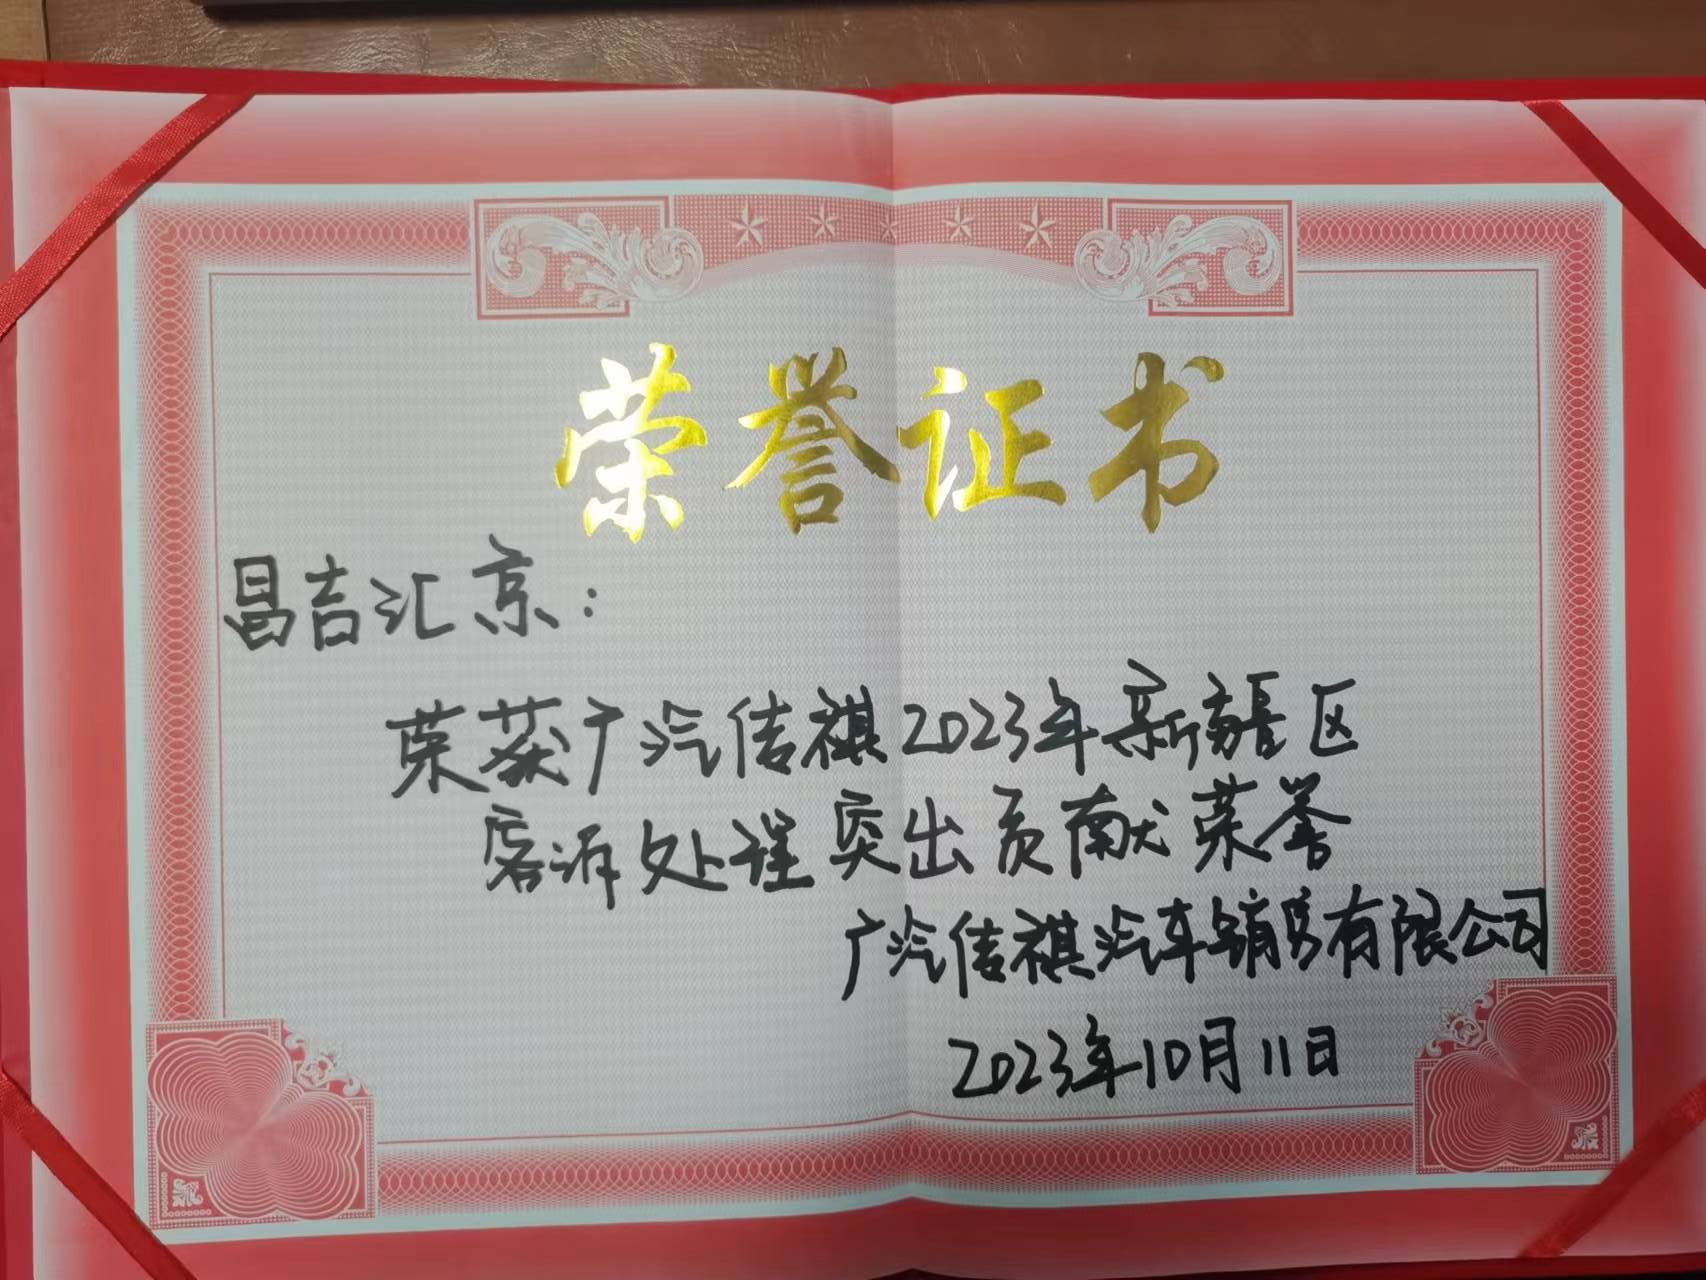 荣誉证书
昌吉汇京:
荣获广汽传祺2023年新疆区
客诉处理突出贡献荣誉
广汽传祺汽车销售有限公司
2023年10月11日